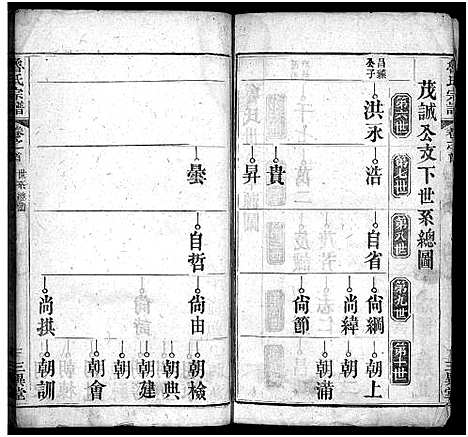 魯氏宗譜
茂誠公支下世系總圖
第六世
第七世
第八世
第九世
第十世
昌錶公子
洪永
浩
貴
昇
自省
尚綱
尚緯
尚節
朝上
朝滿
三異堂
曇
自哲
尚由
尚拱
朝檢
朝典
朝建
朝
朝會
朝訓
魯氏宗譜
卷之首
世系總圖
三異堂